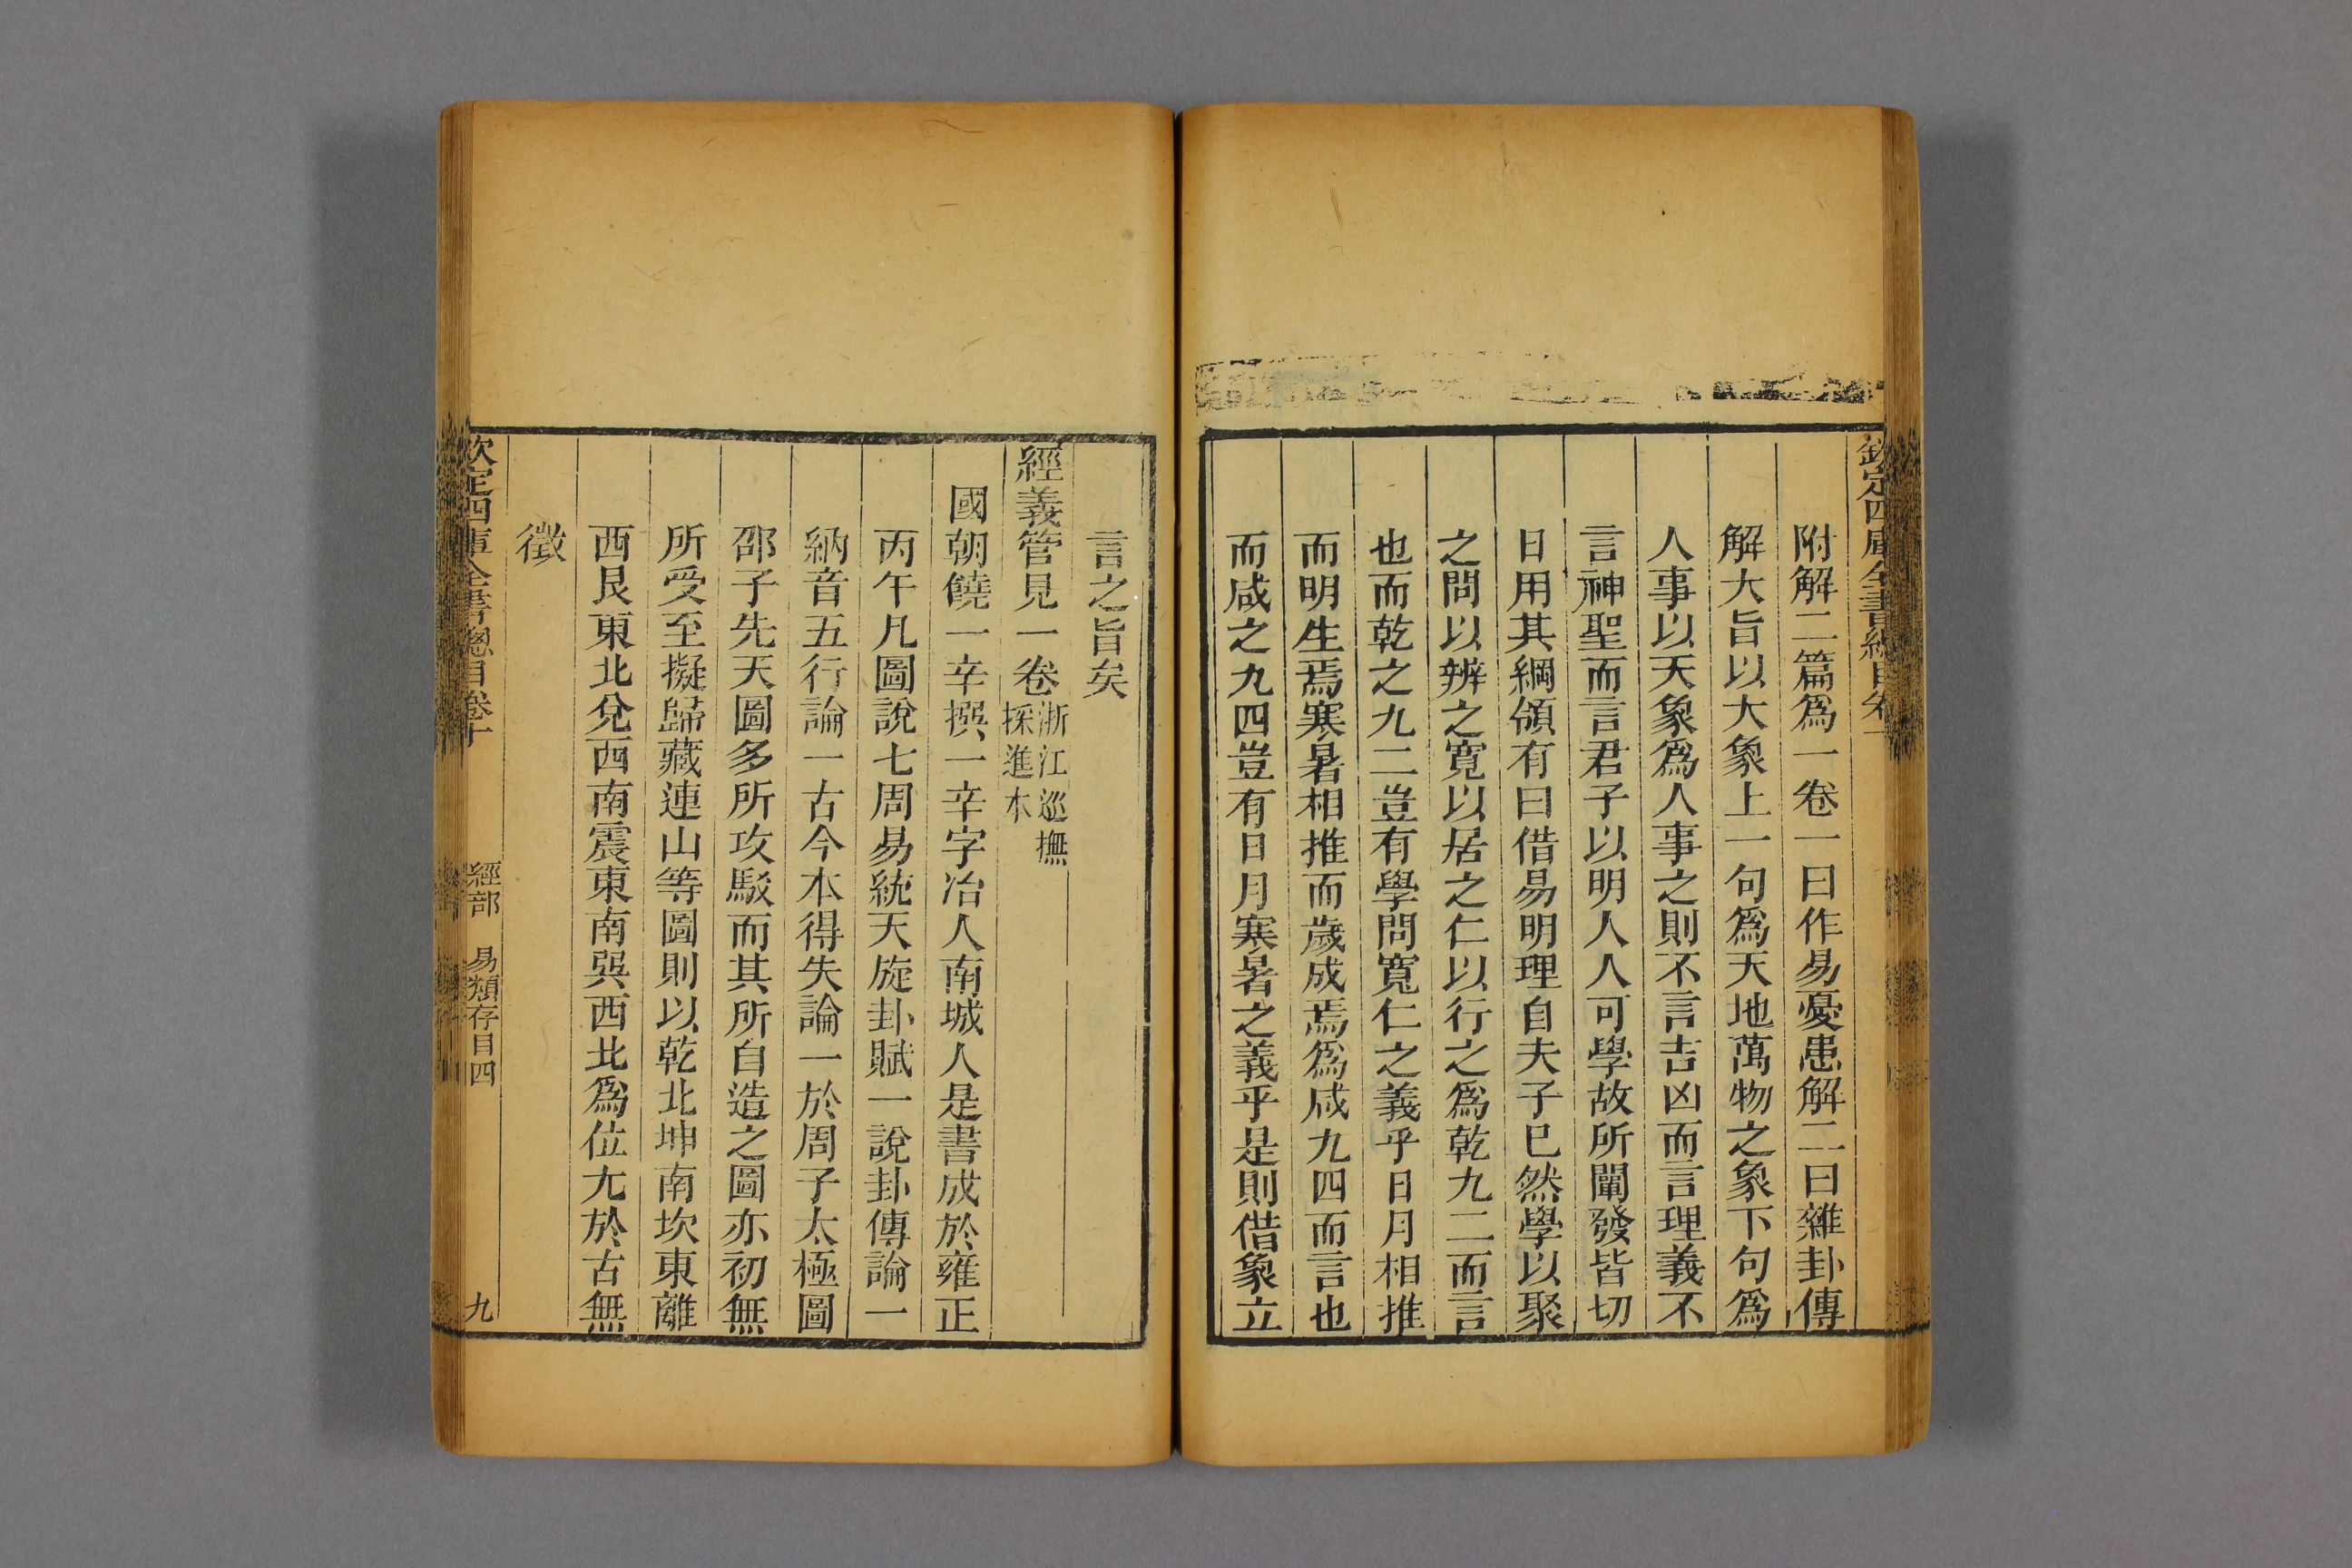 附解二篇爲一卷一曰作易憂患解二曰雜卦傳
解大旨以大象上一句爲天地萬物之象下句爲
人事以天象爲人事之則不言吉凶而言理義不
言神聖而言君子以明人人可學故所闡發皆切
日用其綱領有曰借易明理自夫子已然學以聚
之問以辨之寬以居之仁以行之爲乾九二而言
也而乾之九二豈有學問寬仁之義乎日月相推
而明生焉寒暑相推而歲成焉爲咸九四而言也
而咸之九四豈有日月寒暑之義乎是則借象立
言之旨矣
經義管見一卷浙江巡撫
採進本
國朝饒一辛撰一辛字冶人南城人是書成於雍正
丙午凡圖說七周易統天旋卦賦一說卦傳論一
納音五行論一古今本得失論一於周子太極圖
邵子先天圖多所攻駁而其所自造之圖亦初無
所受至擬歸藏連山等圖則以乾北坤南坎東離
西艮東北兌西南震東南巽西北爲位尤於古無
徵
欽定四庫全書總目卷十 經部 易類存目四 九